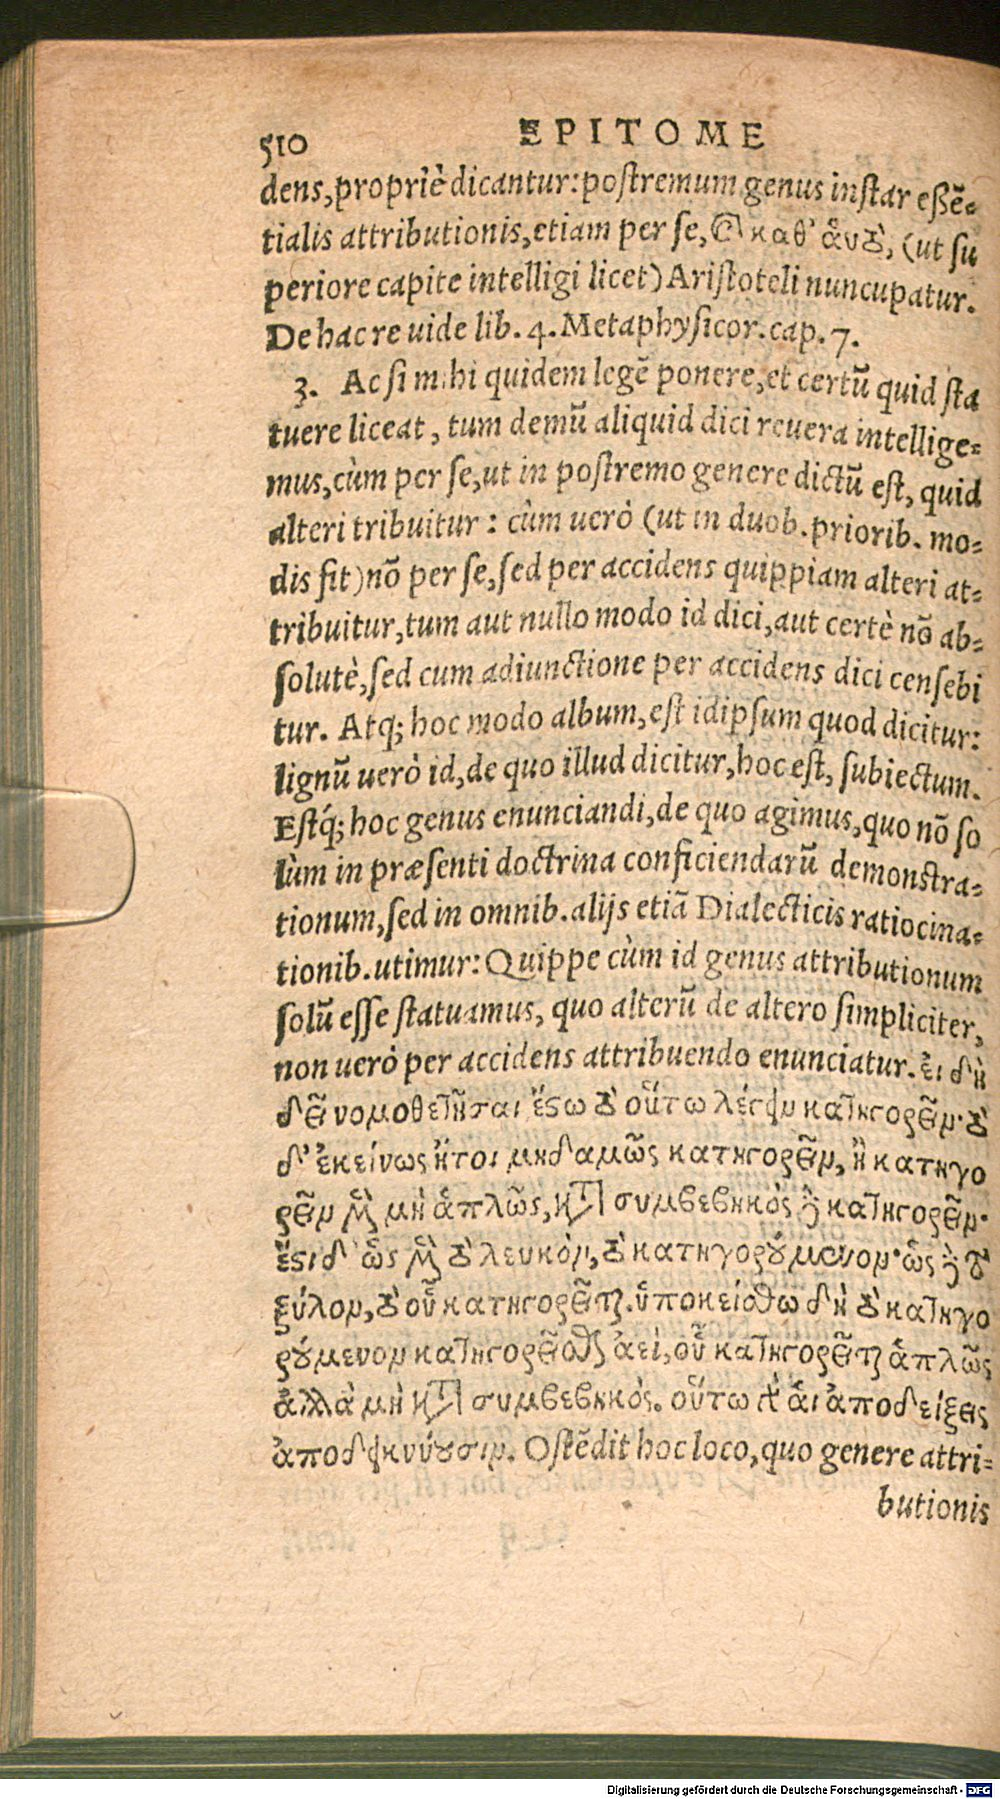 510 EPITOME
dens, propriè dicantur: postremum genus instar eßẽ-
tialis attributionis, etiam per se, & καθ' ἁυτὸ, (ut su
periore capite intelligi licet) Aristoteli nuncupatur.
De hac re uide lib. 4. Metaphysicor. cap. 7.
3. Ac si mihi quidem legẽ ponere, et certũ quid sta
tuere liceat, tum demũ aliquid dici reuera intellige-
mus, cùm per se, ut in postremo genere dictũ est, quid
alteri tribuitur: cùm uerò (ut in duob. priorib. mo-
dis fit) nõ per se, sed per accidens quippiam alteri at-
tribuitur, tum aut nullo modo id dici, aut certè nõ ab-
solutè, sed cum adiunctione per accidens dici censebi
tur. Atq; hoc modo album, est idipsum quod dicitur:
lignũ uerò id, de quo illud dicitur, hoc est, subiectum.
Estq́; hoc genus enunciandi, de quo agimus, quo nõ so
lùm in præsenti doctrina conficiendarũ demonstra-
tionum, sed in omnib. alijs etiã Dialecticis ratiocina-
tionib. utimur: Quippe cùm id genus attributionum
solũ esse statuamus, quo alterũ de altero simpliciter,
non uerò per accidens attribuendo enunciatur. ἐι δὴ
δεῖ νομοθετῆσαι ἔστω τὸ οὕτω λέγειν κατηγορεῖν· τὸ
δ' ἐκείνως ἤτοι μηδαμῶς κατηγορεῖν, ἢ κατηγο
ρεῖν μὲν μὴ ἁπλῶς, κατὰ συμβεβηκὸς δὲ κατηγορεῖν·
ἔστι δ' ὡς μὲν τὸ λευκὸν, τὸ κατηγορούμενον· ὡς δὲ τὸ
ξύλον, τὸ οὗ κατηγορεῖται. ὑποκείσθω δὴ τὸ κατηγο
ρούμενον κατηγορεῖσθαι ἀεὶ, οὗ κατηγορεῖται ἁπλῶς
ἀλλὰ μὴ κατὰ συμβεβηκὸς. οὕτω γὰρ ἁι ἀποδείξεις
ἀποδεικνύουσιν. Ostẽdit hoc loco, quo genere attri-
butionis
Digitalisierung gefördert durch die Deutsche Forschungsgemeinschaft - DFG